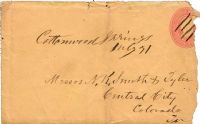 Cottonwood Springs
July 21
Messrs N. H. Smith & Tyler
Central City
Colorado